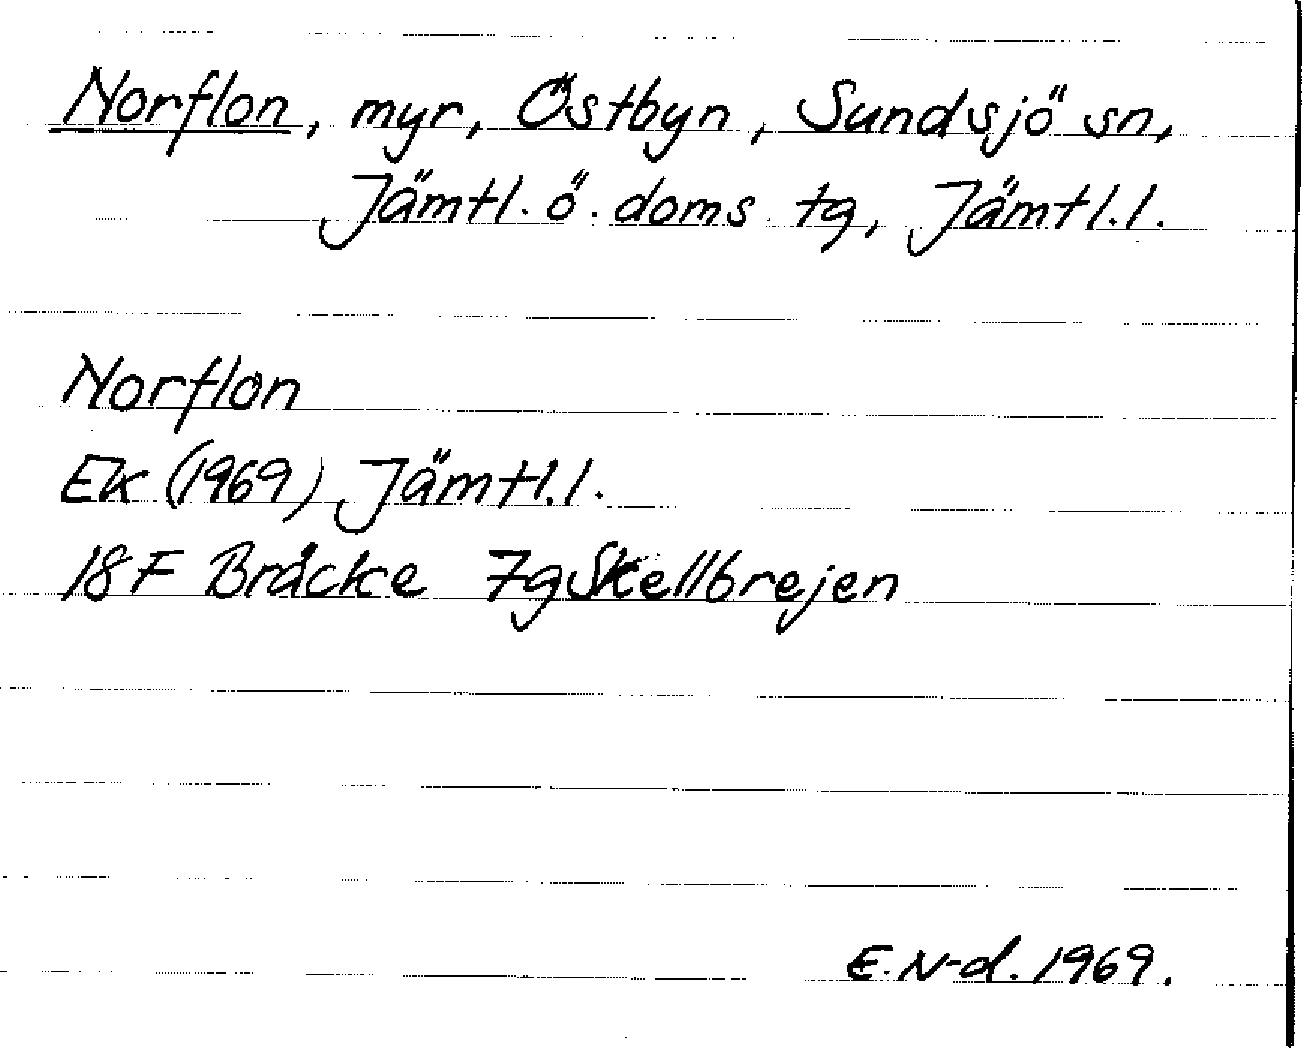 Norflon, myr, Östbyn, Sundsjö sn,
Jämtl. ö. doms tg, Jämtl. l.
Norflon
Ek (1969) Jämtl. l.
18F Bräcke 7g Skellbrejen
E. N-d. 1969.